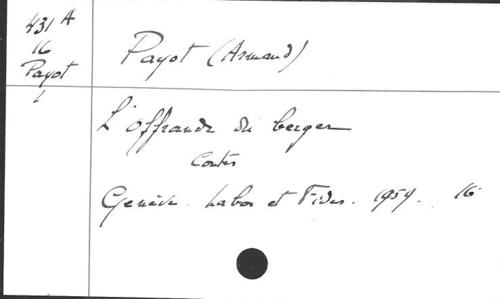 431 A
16
Payot
1
Payot (Armand)
L'offrande du berger
Contes
Genève. Labor et Fides. 1959. 16